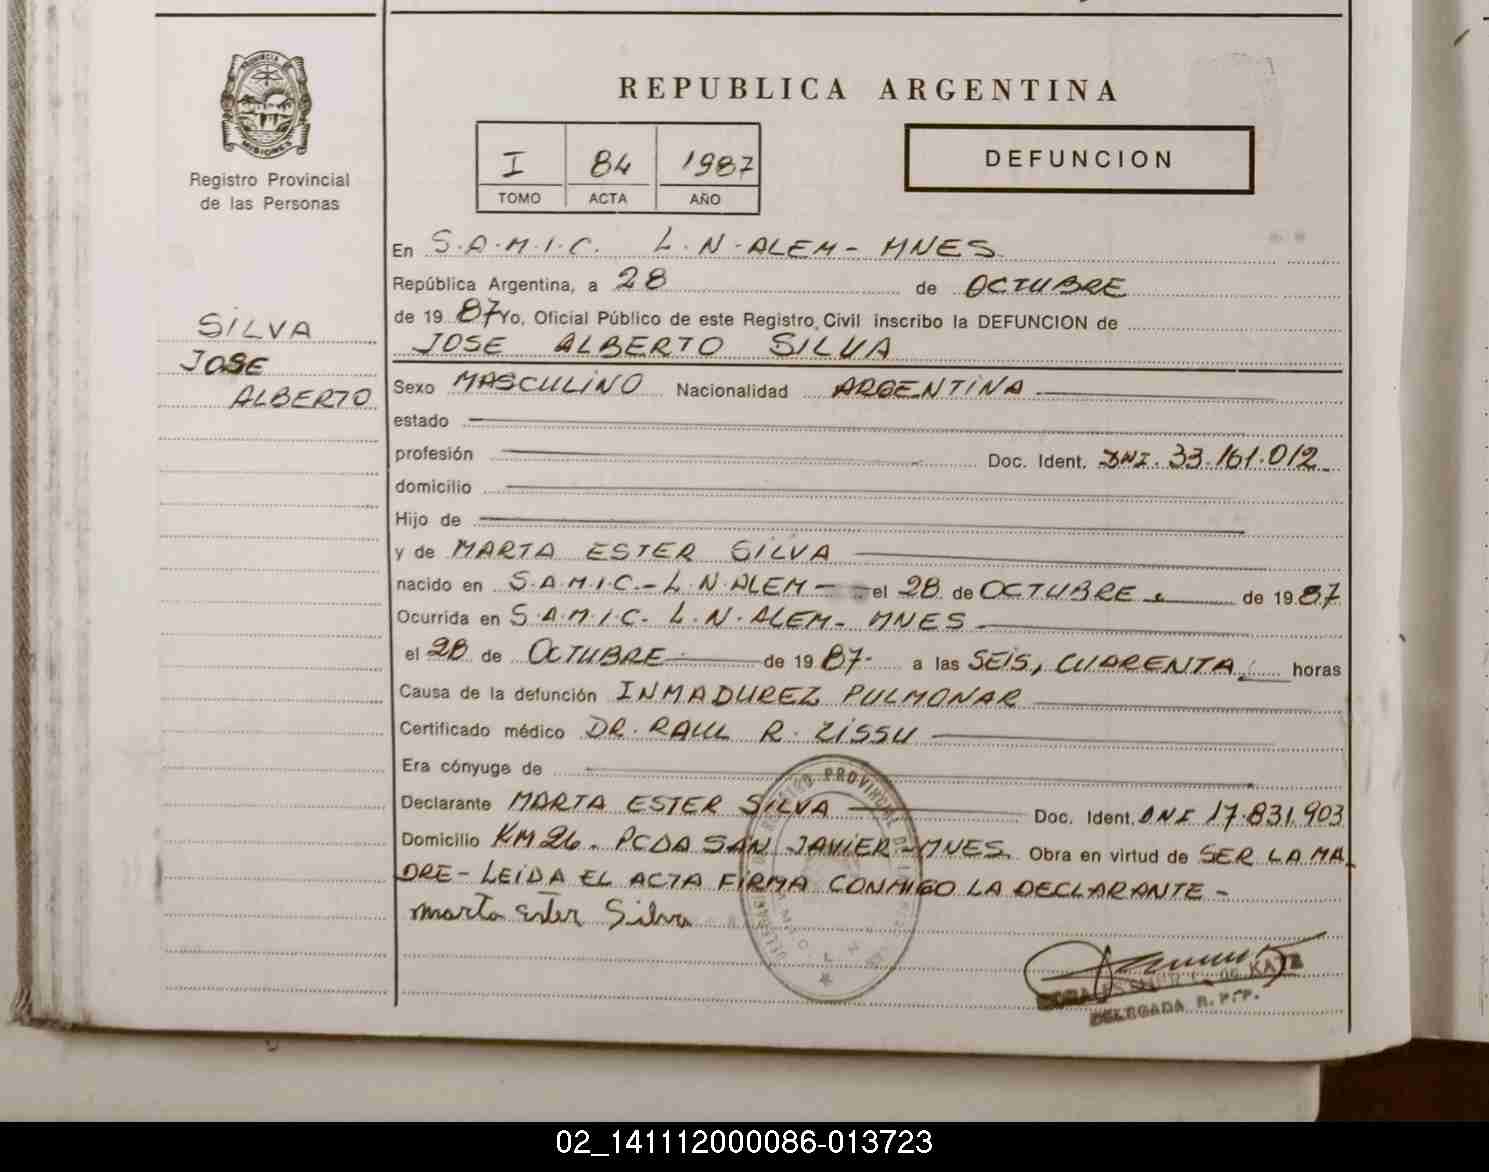 REPUBLICA ARGENTINA
PROVINCIA DE
MISIONES
Registro Provincial
de las Personas
I 84 1987
TOMO ACTA AÑO
DEFUNCION
SILVA
JOSE
ALBERTO
En S.A.M.I.C. L.N.ALEM- MNES
República Argentina, a 28 de OCTUBRE
de 1987 Yo, Oficial Público de este Registro Civil inscribo la DEFUNCION de
JOSE ALBERTO SILVA
Sexo MASCULINO Nacionalidad ARGENTINA
estado
profesión Doc. Ident. DNI. 33.161.012
domicilio
Hijo de
y de MARTA ESTER SILVA
nacido en S.A.M.I.C.- L.N.ALEM- el 28 de OCTUBRE de 1987
Ocurrida en S.A.M.I.C- L.N.ALEM- MNES
el 28 de OCTUBRE de 1987- a las SEIS, CUARENTA horas
Causa de la defunción INMADUREZ PULMONAR
Certificado médico DR. RAUL R. ZISSU
Era cónyuge de
Declarante MARTA ESTER SILVA Doc. Ident. DNI 17.831.903
Domicilio KM 26. PCDA SAN JAVIER-MNES. Obra en virtud de SER LA MA
DRE- LEIDA EL ACTA FIRMA CONMIGO LA DECLARANTE-
Marta Ester Silva
REGISTRO PROVINCIAL DE
DE KATZ
DELEGADA R.P.P.
02_141112000086-013723